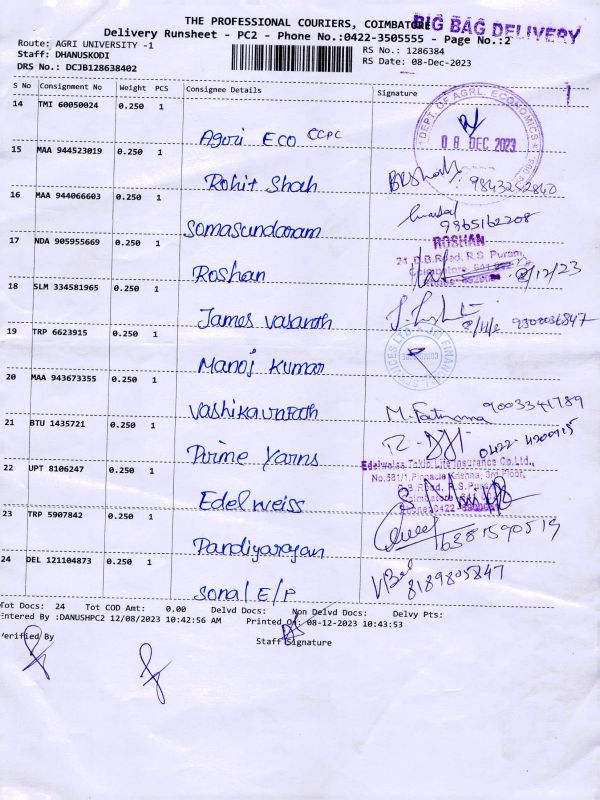 THE PROFESSIONAL COURIERS, COIMBATORE
BIG BAG DELIVERY
Delivery Runsheet - PC2 - Phone No.:0422-3505555 - Page No.:2
Route: AGRI UNIVERSITY -1
RS No.: 1286384
Staff: DHANUSKODI
RS Date: 08-Dec-2023
DRS No.: DCJB128638402
S No Consignment No Weight PCS Consignee Details Signature
14 TMI 60050024 0.250 1
Agri Eco CCPC
DEPT. OF AGRL. ECONOMICS
08 DEC 2023
15 MAA 944523019 0.250 1
Rohit Shah
16 MAA 944066603 0.250 1
Somasundaram
9965162208
17 NDA 905955669 0.250 1
Roshan
ROSHAN
24, D.B.Road, R.S. Puram,
8/12/23
18 SLM 334581965 0.250 1
James Vasanth
19 TRP 6623915 0.250 1
Manoj Kumar
20 MAA 943673355 0.250 1
M. Fathima 9003341789
21 BTU 1435721 0.250 1
Prime Yarns
22 UPT 8106247 0.250 1
Edelweiss
Edelweiss Tokio Life Insurance Co.Ltd.,
No.581/1, Pinnacle Krishna, 3rd Floor,
D.B.Road, R.S.Puram
Coimbatore
23 TRP 5907842 0.250 1
Pandiyarajan
6381590519
24 DEL 121104873 0.250 1
Sonal E/P
8189805847
Tot Docs: 24 Tot COD Amt: 0.00 Delvd Docs: Non Delvd Docs: Delvy Pts:
Entered By :DANUSHPC2 12/08/2023 10:42:56 AM Printed On: 08-12-2023 10:43:53
Verified By Staff Signature